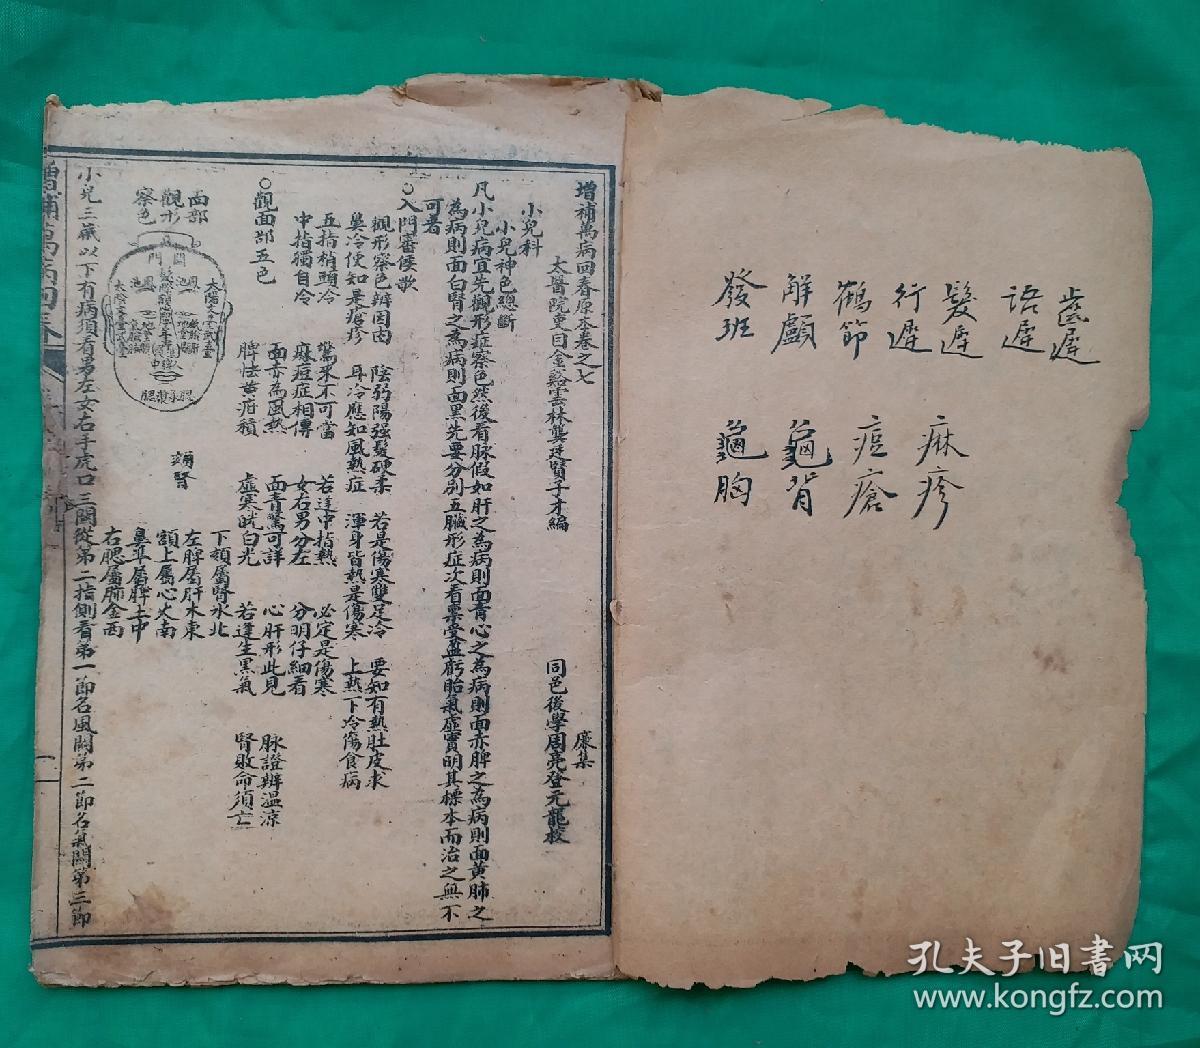 齒遲
語遲
髮遲
行遲
鶴節
解顱
發班
痳疹
痘瘡
龜背
龜胸
增補萬病回春原本卷之七
太醫院吏目金谿雲林龔廷賢子才編
廉集
同邑後學周亮登元龍校
小兒科
小兒神色總斷
凡小兒病宜先觀形症察色然後看脉假如肝之為病則面青心之為病則面赤脾之為病則面黃肺之
為病則面白腎之為病則面黑先要分别五臟形症次看禀受盈虧胎氣虛實明其標本而治之無不
可者
○入門審候歌
觀形察色辨因由 陰弱陽强髮硬柔 若是傷寒雙足冷 要知有熱肚皮求
鼻冷便知是瘡疹 耳冷應如風熱症 渾身皆熱是傷寒 上熱下冷傷食病
五指梢頭冷 驚來不可當 若逢中指熱 必定是傷寒
中指獨自冷 麻痘症相傳 女右男分左 分明仔細看
○觀面部五色
面赤為風熱 面青驚可詳 心肝形此見 脉證辨温涼
脾怯黃疳積 虛寒㿠白光 若逢生黑氣 腎敗命須亡
面部
觀形
察色
下頦屬腎水北
左臉屬肝木東
額上屬心火南
鼻準屬脾土中
右腮屬肺金西
小兒三歲以下有病須看男左女右手虎口三關從第二指側看第一節名風關第二節名氣關第三節
增補萬病回春
孔夫子旧书网
www.kongfz.com